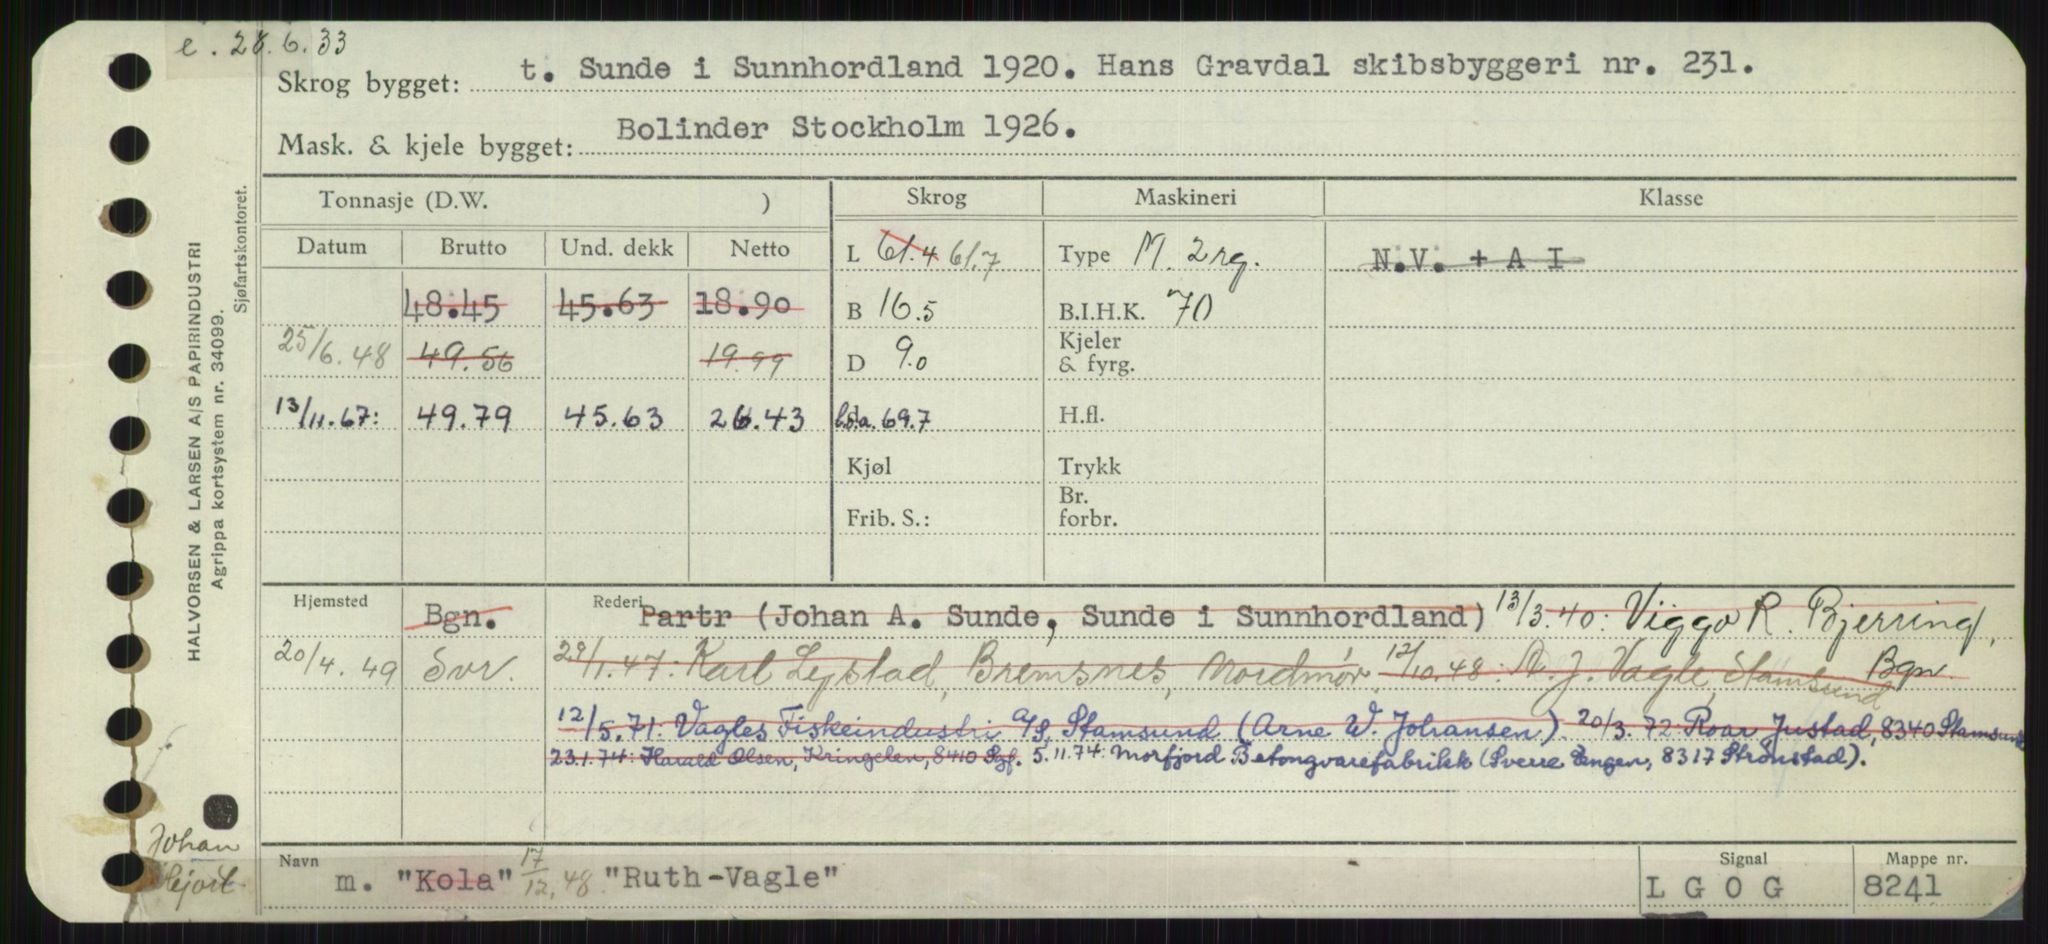 e. 28.6.33
Skrog bygget: t. Sunde i Sunnhordland 1920. Hans Gravdal skibsbyggeri nr. 231.
Mask. & kjele bygget: Bolinder Stockholm 1926.
HALVORSEN & LARSEN A/S PAPIRINDUSTRI
Agrippa kortsystem nr. 34099.
Sjøfartskontoret.
Tonnasje (D.W. ) Skrog Maskineri Klasse
Datum Brutto Und. dekk Netto L 61.4 61.7 Type M. 2 rg. N.V. + A I
48.45 45.63 18.90 B 16.5 B.I.H.K. 70
25/6.48 49.56 19.99 D 9.0 Kjeler & fyrg.
13/11.67: 49.79 45.63 26.43 l.o.a. 69.7 H.fl.
Kjøl Trykk
Frib. S.: Br. forbr.
Hjemsted Bgn. Rederi Partr (Johan A. Sunde, Sunde i Sunnhordland) 13/3.40: Viggo R. Bjerring,
Bgn.
20/4.49 Svr. 29/1.47: Karl Lystad, Bremsnes, Nordmør. 12/10.48: A. J. Vagle, Stamsund
12/5.71: Vagles Fiskeindustri a/s, Stamsund (Arne W. Johansen). 20/3.72: Roar Justad, 8340 Stamsund
23.1.74: Harald Olsen, Kringelen, 8410 Lgf. 5.11.74: Morfjord Betongvarefabrikk (Sverre Engen, 8317 Strønstad).
Johan
Hjort
Navn m. "Kola" 17/12.48 "Ruth-Vagle" Signal LGOG Mappe nr. 8241